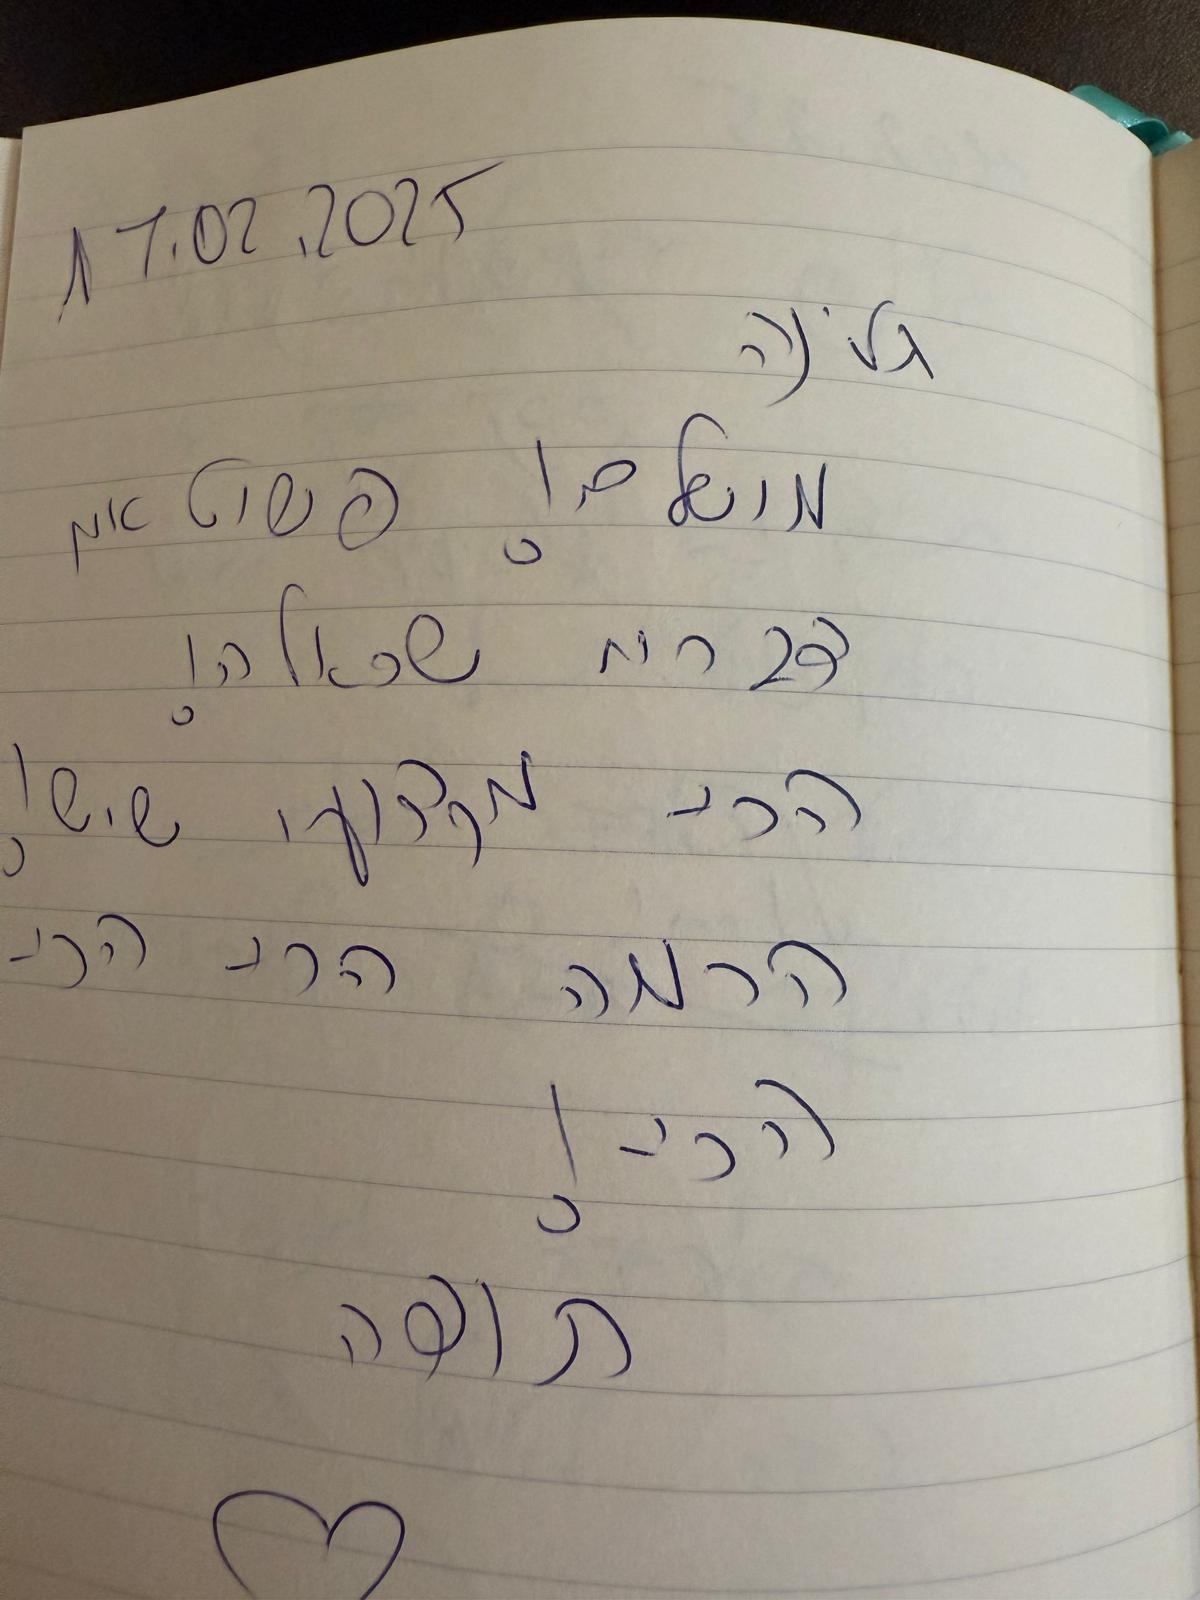 17.02.2025
גלינה
מושלם! פשוט אין
דברים שכאלה!
הכי מקצועי שיש!
הרמה הכי הכי
הכי!
תופה